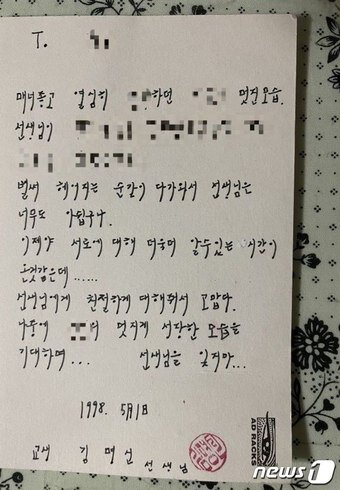 T.
매너좋고 열심히 하던 멋진모습.
선생님이
벌써 헤어지는 순간이 다가와서 선생님은
너무도 아쉽구나.
이제야 서로에 대해 더욱더 알수있는 시간이
온것같은데......
선생님에게 친절하게 대해줘서 고맙다.
나중에 의 멋지게 성장한 모습을
기대하며... 선생님을 잊지마...
1998. 5月1日
교생 김명신 선생님
AD RACKS
news1